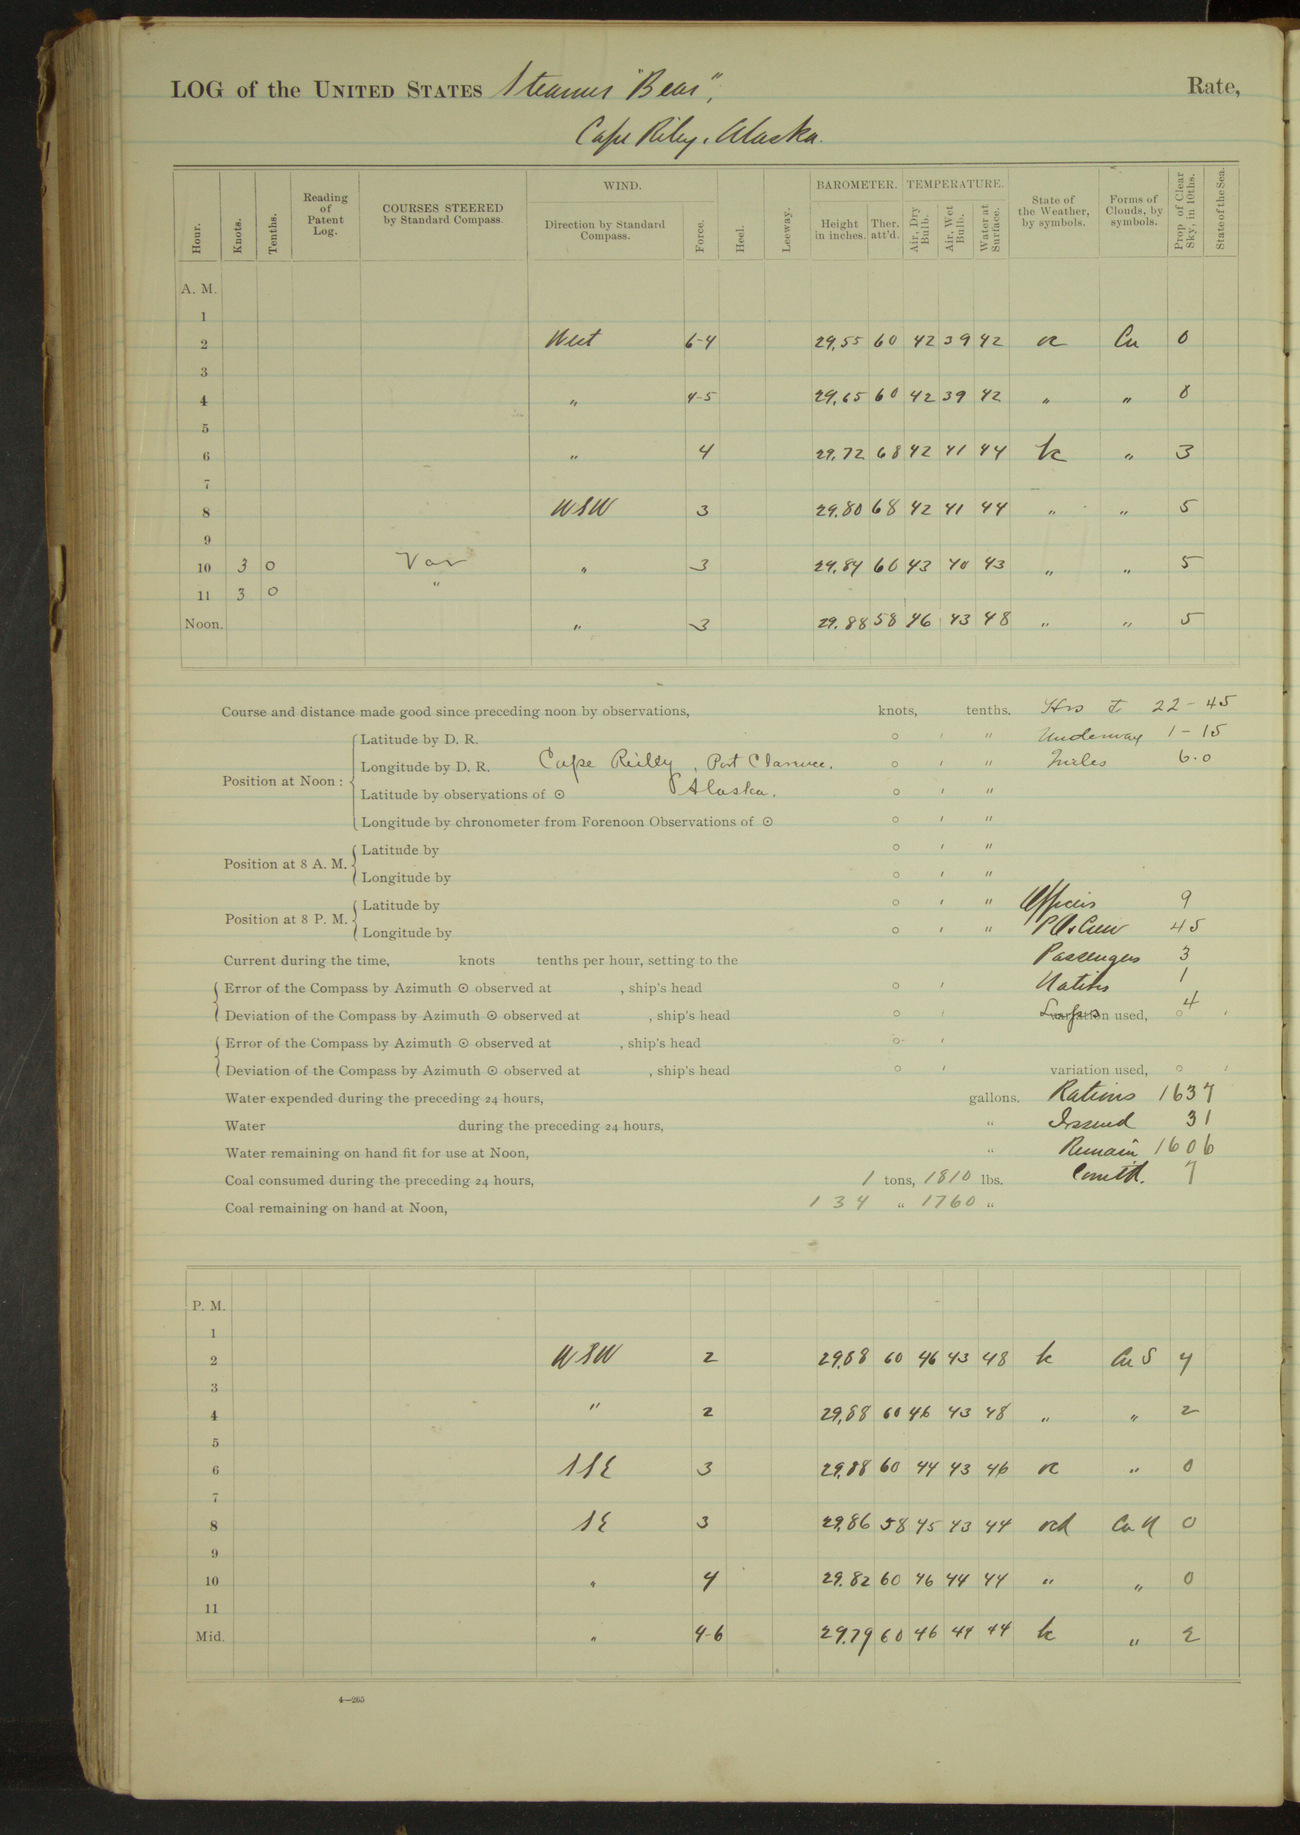 LOG of the UNITED STATES Steamer "Bear", Rate,
Cape Riley, Alaska.
Hour. Knots. Tenths. Reading of Patent Log. COURSES STEERED by Standard Compass. WIND. Direction by Standard Compass. Force. Heel. Leeway. BAROMETER. Height in inches. Ther. att'd. TEMPERATURE. Air, Dry Bulb. Air, Wet Bulb. Water at Surface. State of the Weather, by symbols. Forms of Clouds, by symbols. Prop. of Clear Sky, in 10ths. State of the Sea.
A. M.
1
2 West 6-4 29.55 60 42 39 42 oc Cu 0
3
4 " 4-5 29.65 60 42 39 42 " " 0
5
6 " 4 29.72 68 42 41 44 bc " 3
7
8 WSW 3 29.80 68 42 41 44 " " 5
9
10 3 0 Var " 3 29.84 60 43 40 43 " " 5
11 3 0 "
Noon. " 3 29.88 58 46 43 48 " " 5
Course and distance made good since preceding noon by observations, knots, tenths. Hrs 22-45
Latitude by D. R. ° ' " Underway 1-15
Position at Noon: Longitude by D. R. Cape Reilly, Port Clarence, ° ' " Miles 6.0
Latitude by observations of ☉ Alaska. ° ' "
Longitude by chronometer from Forenoon Observations of ☉ ° ' "
Position at 8 A. M. Latitude by ° ' "
Longitude by ° ' "
Position at 8 P. M. Latitude by ° ' " Officers 9
Longitude by ° ' " P.O. & Crew 45
Current during the time, knots tenths per hour, setting to the Passengers 3
Error of the Compass by Azimuth ☉ observed at , ship's head ° ' Natives 1
Deviation of the Compass by Azimuth ☉ observed at , ship's head ° ' variation used, ° ' 4
Error of the Compass by Azimuth ☉ observed at , ship's head ° '
Deviation of the Compass by Azimuth ☉ observed at , ship's head ° ' variation used, ° '
Water expended during the preceding 24 hours, gallons. Rations 1637
Water during the preceding 24 hours, " Issued 31
Water remaining on hand fit for use at Noon, " Remain 1606
Coal consumed during the preceding 24 hours, 1 tons, 1810 lbs. Comtd. 7
Coal remaining on hand at Noon, 134 " 1760 "
P. M.
1
2 WSW 2 29.88 60 46 43 48 bc Cu S 4
3
4 " 2 29.88 60 46 43 48 " " 2
5
6 SSE 3 29.88 60 44 43 46 oc " 0
7
8 SE 3 29.86 58 45 43 44 ocd Cu N 0
9
10 " 4 29.82 60 46 44 44 " " 0
11
Mid. " 4-6 29.79 60 46 44 44 bc " 2
4—265